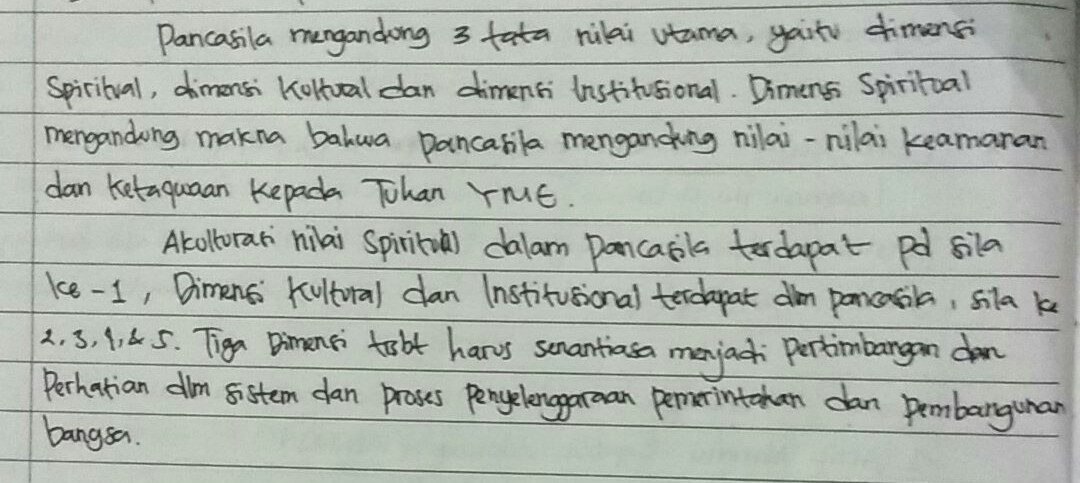 Pancasila mengandung 3 tata nilai utama, yaitu dimensi
Spiritual, dimensi Kultural dan dimensi Institusional. Dimensi Spiritual
mengandung makna bahwa Pancasila mengandung nilai - nilai keamanan
dan Ketaquaan Kepada Tuhan YME.
Akulturasi nilai Spiritual dalam Pancasila terdapat pd sila
ke - 1, Dimensi Kultural dan Institusional terdapat dlm pancasila, sila ke
2, 3, 4, & 5. Tiga Dimensi tsbt harus senantiasa menjadi Pertimbangan dan
Perhatian dlm sistem dan proses Penyelenggaraan pemerintahan dan Pembangunan
bangsa.